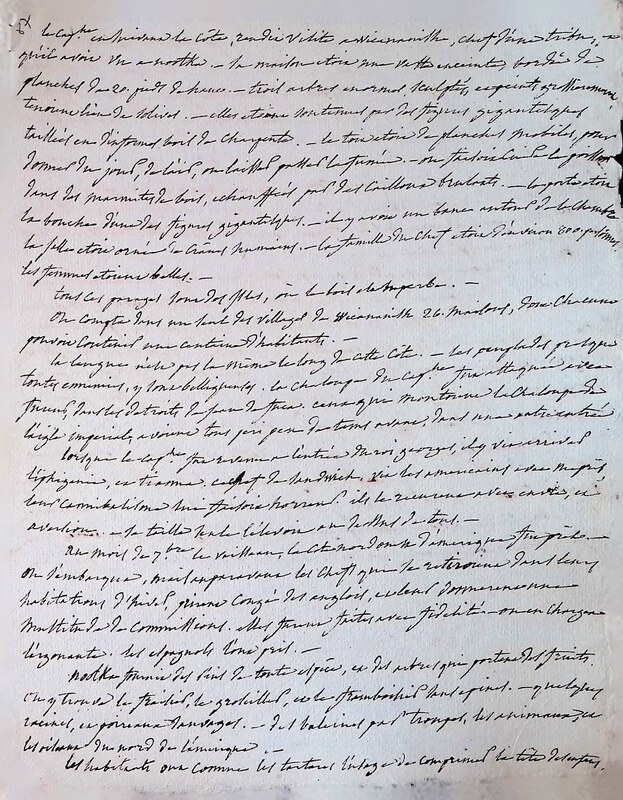 le cap.ne en suivant la côte, rendit visite a wicananish, chef d'une tribu,
qu'il avoit vu a nootka. – sa maison etoit une vaste enceinte, bordée de
planches de 20. pieds de haut. – trois arbres enormes sculptés, et peints grossierement
tenoient lieu de solives. – elles etoient soutenues par des figures gigantesques
taillées en d'informes bois de charpente. – le toit etoit de planches mobiles, pour
donner du jour, de l'air, ou laisser passer la fumée. – on faisoit cuire le poisson
dans des marmites de bois, echauffées par des cailloux brulants. – la porte etoit
la bouche d'une des figures gigantesques. – il y avoit un banc autour de la chambre
la salle etoit ornée de crânes humains. – la famille du chef etoit d'environ 800. personnes.
les femmes etoient belles. –
tous ces parages sont des isles, où le bois est superbe. –
on compta dans un seul des villages de wicananish 26. maisons, dont chacune
pouvoit contenir une centaine d'habitants. –
la langue n'est pas la même le long de cette côte. – les peuplades, presque
toutes ennemies, y sont belliqueuses. la chaloupe du cap.ne fut attaquée avec
fureur, dans les detroits de juan de fuca. ceux qui montoient la chaloupe de
l'aigle imperial, avoient tous péri peu de tems avant, dans une autre entrée
lorsque le cap.ne fut revenu a l'entrée du roi georges, il y vit arriver
l'iphigenie, et tianna. ce chef de sandwich, vit les americains avec mepris,
leur cannibalisme lui faisoit horreur. ils le reçurent avec envie, et
aversion. – sa taille haute l'elevoit au dessus de tous. –
au mois de 7.bre le vaisseau, la côte nord ouest d'amerique fut prêt. –
on s'embarqua, mais auparavant les chefs qui se retiroient dans leurs
habitations d'hiver, prirent congé des anglois, et leur donnerent une
multitude de commissions. elles furent faites avec fidélité – on en chargea
l'argonaute. les espagnols l'ont pris. –
nootka fournit des bois de toute espèce, et des arbres qui portent des fruits.
on y trouve la fraise, la groseille, et la framboise sans epines. – quelques
racines, et poireaux sauvages. – des baleines par troupes, les animaux, et
les oiseaux du nord de l'amerique. –
les habitants ont comme les tartares l'usage de comprimer la tete des enfans.